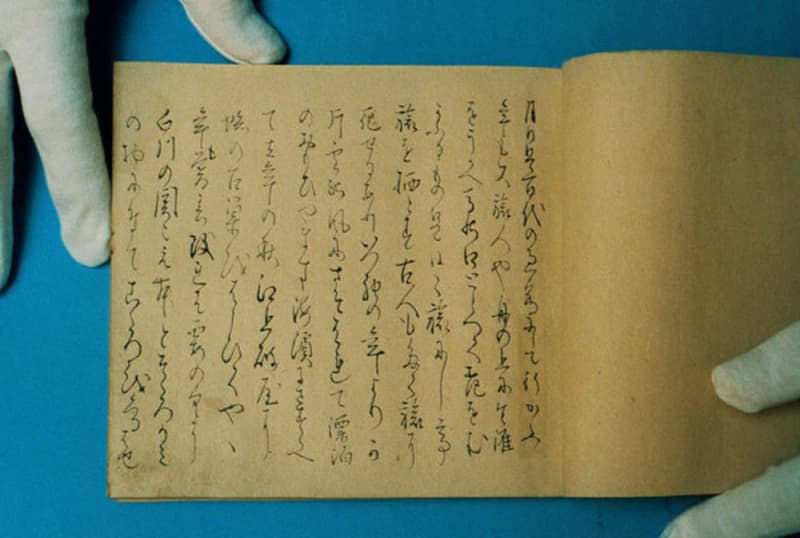 月日は百代の過客にして行かふ
年も又旅人也舟の上に生涯
をうかへ馬の口とらへて老をむ
かふるものは日々旅にして
旅を栖とす古人も多く旅に
死せるありいつれの年よりか
片雲の風にさそはれて漂泊
のおもひやます海濱にさすらへ
て去年の秋江上破屋に
蜘の古巣をはらひてやゝ
年も暮春改れは霞の空に
白川の関こえむとそゝろかみ
の物に付てこゝろをくるはせ